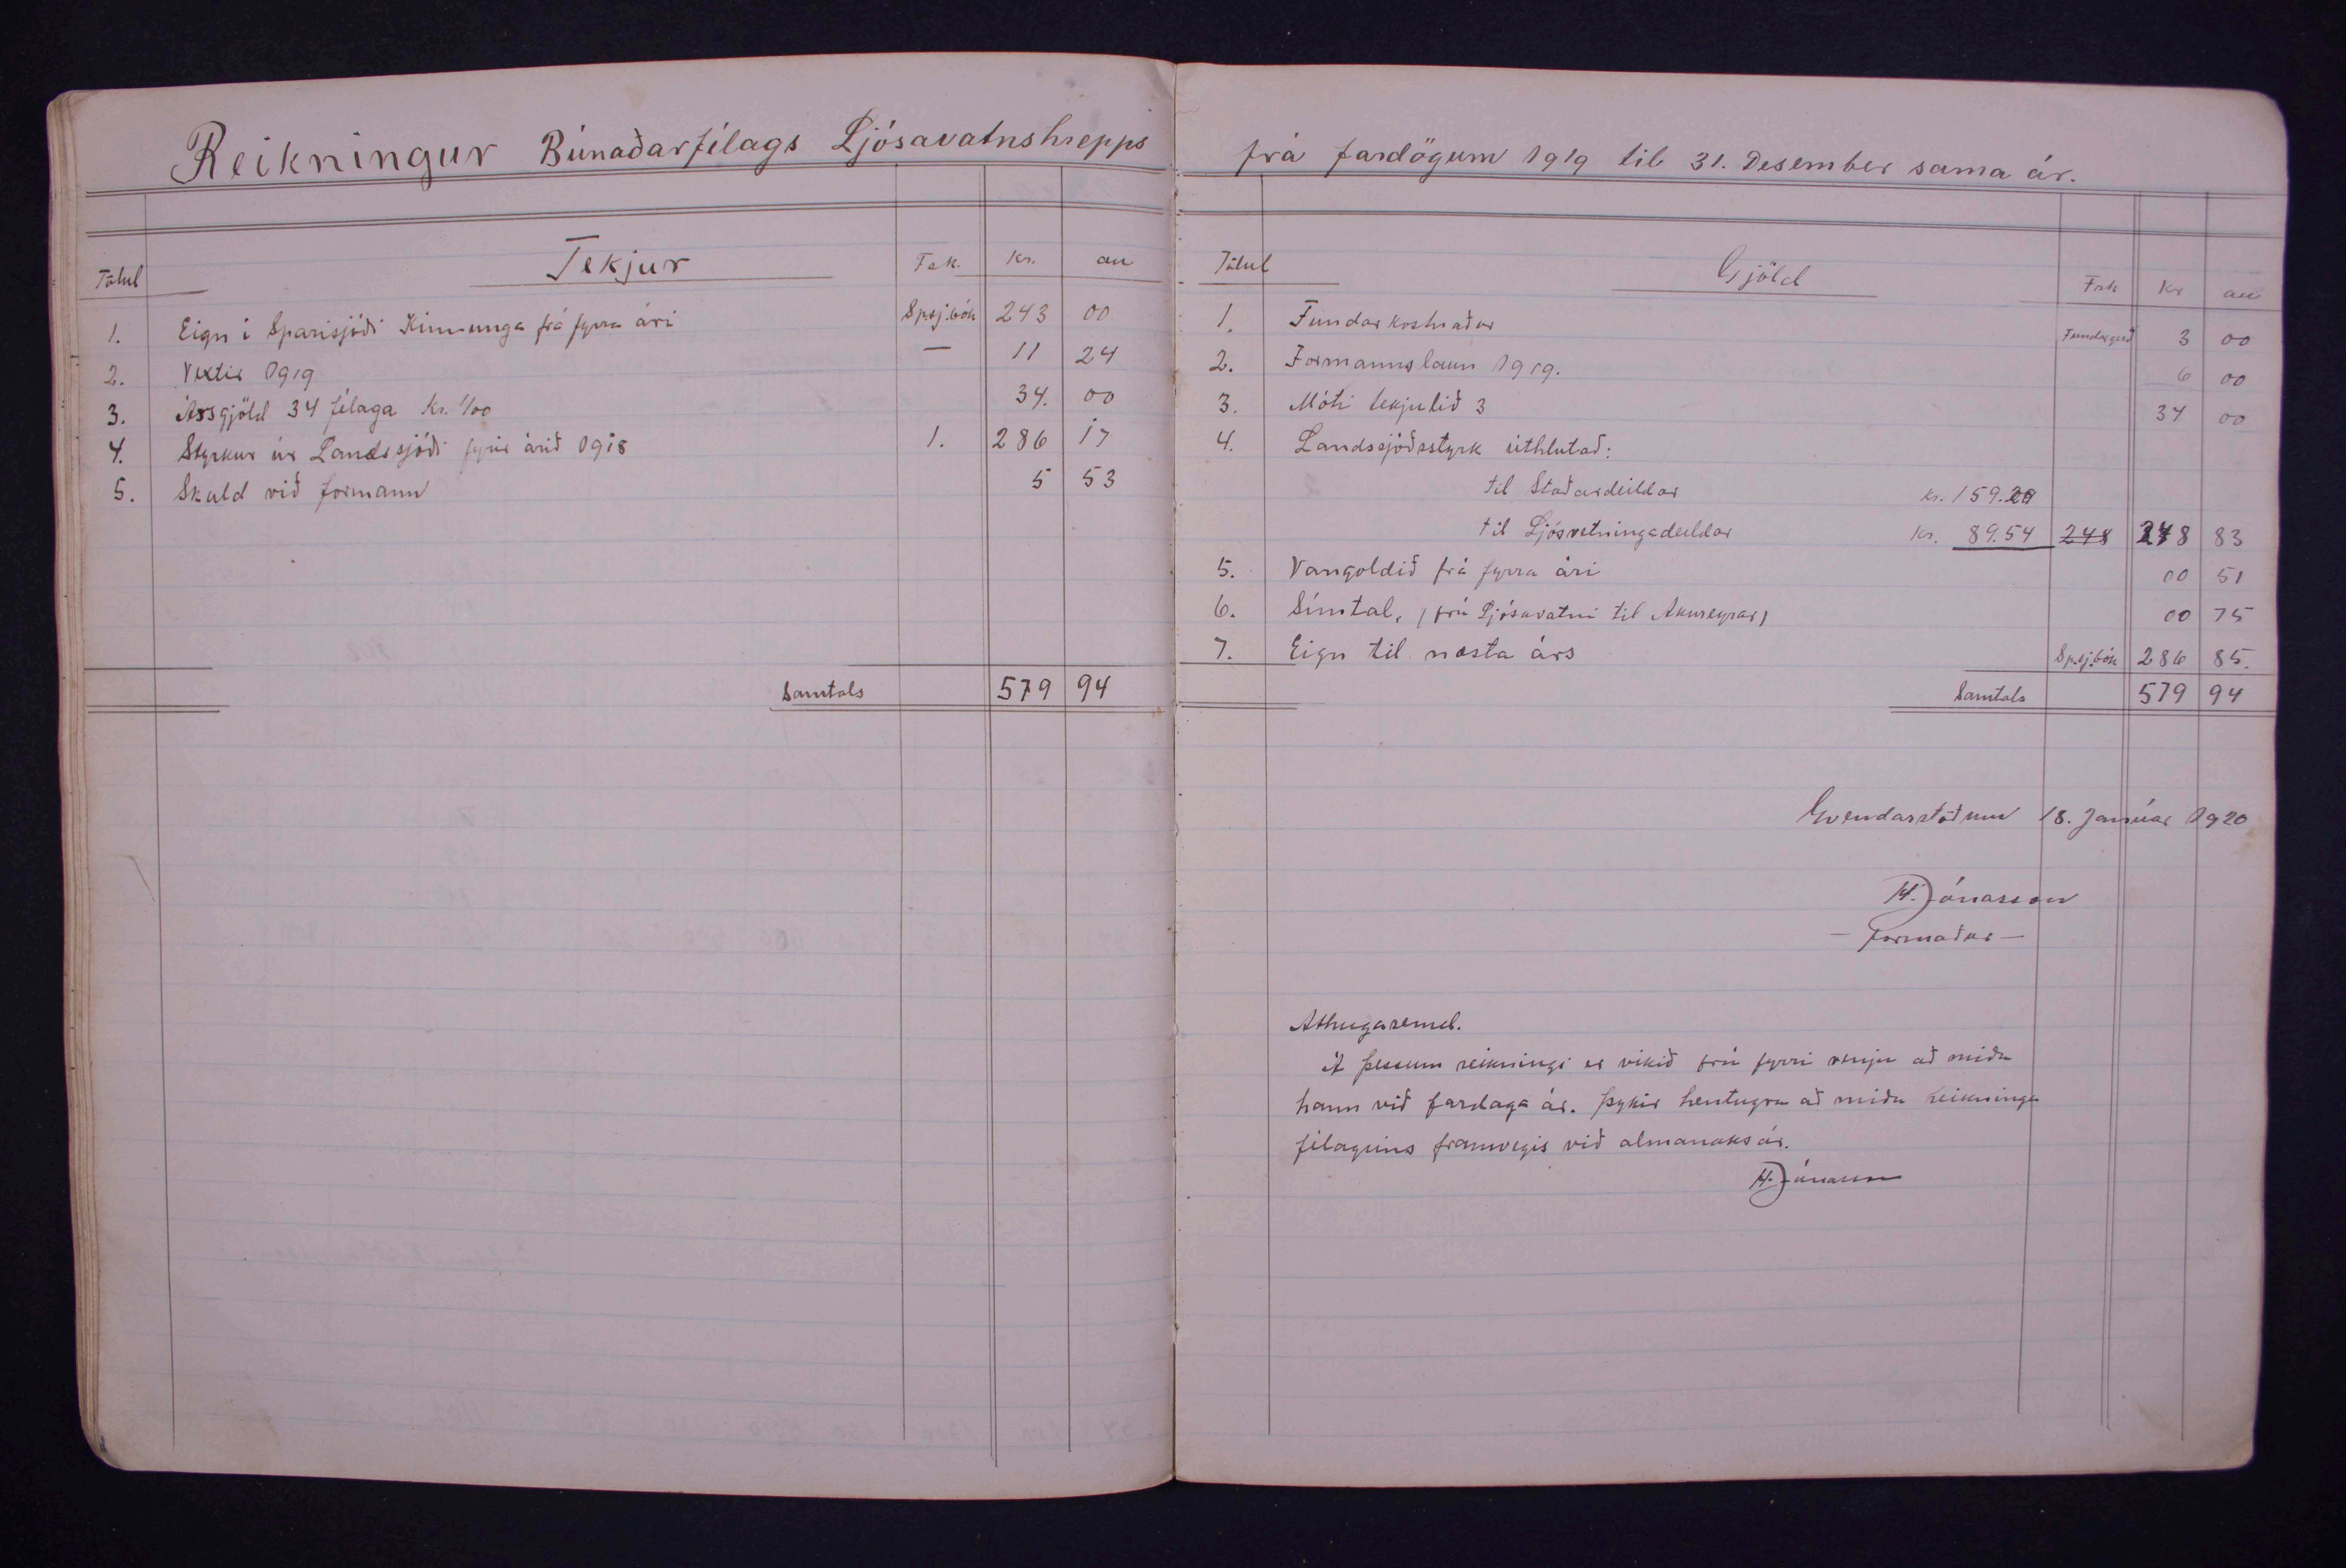 Reikningur Búnaðarfélags Ljósavatnshrepps
Tölul Tekjur Fsk. Kr. au
1. Eign í Sparisjóði Kinnunga frá fyrra ári Spsj.bók 243 00
2. Vextir 1919 — 11 24
3. Ársgjöld 34 félaga Kr. 1/00 34. 00
4. Styrkur úr Landssjóði fyrir árið 1918 1. 286 17
5. Skuld við formann 5 53
Samtals 579 94
frá fardögum 1919 til 31. Desember sama ár.
Tölul Gjöld Fsk Kr au
1. Fundarkostnaður Fundargerð 3 00
2. Formannslaun 1919. 6 00
3. Móti tekjulið 3 34 00
4. Landssjóðsstyrk úthlutað:
til Staðardeildar kr. 159.29
til Ljósvetningadeildar Kr. 89.54 248 248 83
5. Vangoldið frá fyrra ári 00 51
6. Símtal, (frá Ljósavatni til Akureyrar) 00 75
7. Eign til næsta árs Sp.sj.bók 286 85.
Samtals 579 94
Gvendarstöðum 18. Janúar 1920
H. Jónasson
— formaður —
Athugasemd.
Á þessum reikningi er vikið frá fyrri venju að miða
hann við fardaga ár. Þykir hentugra að miða reikninga
félagsins framvegis við almanaksár.
H. Jónasson